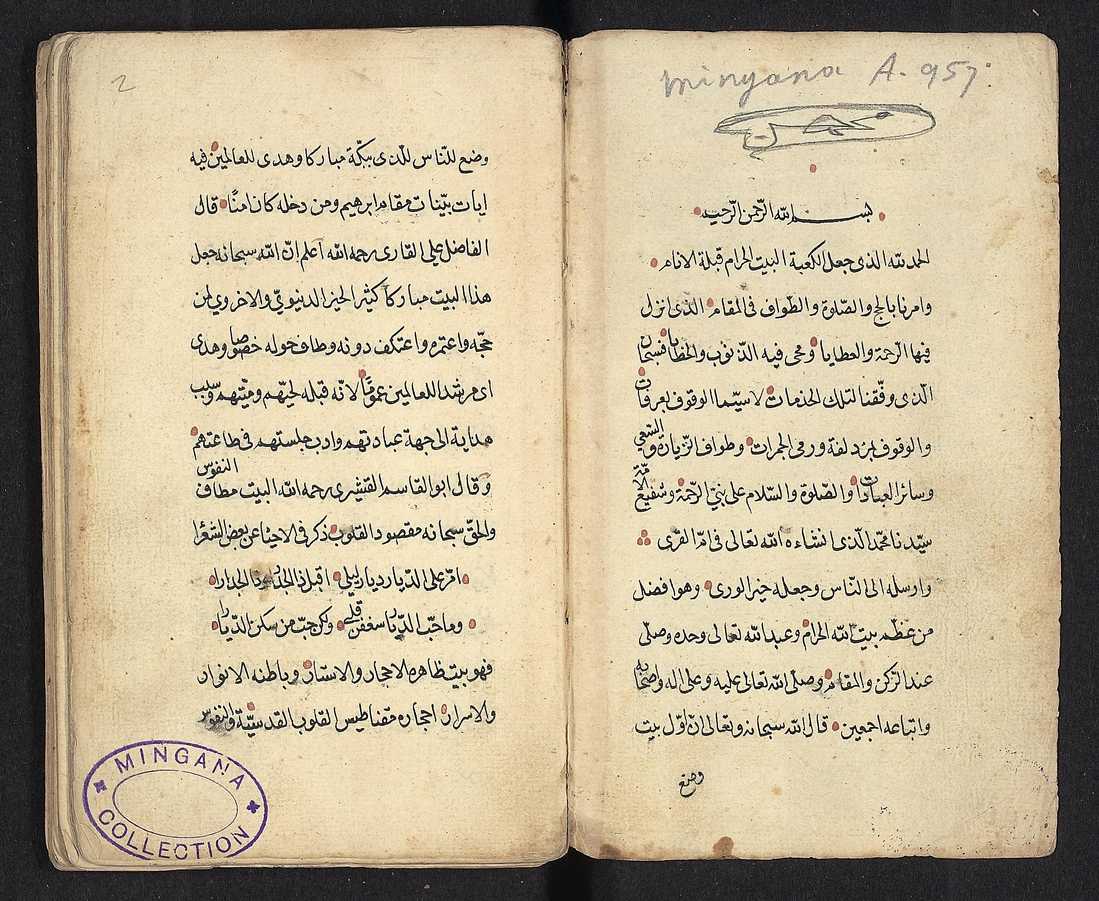 Mingana A. 957.
بسم الله الرحمن الرحيم
الحمد لله الذى جعل الكعبة البيت الحرام قبلة الانام
وامرنا بالحج والصّلوة والطّواف فى المقام الذى انزل
فيها الرحمة والعطايا ومحى فيه الذّنوب والخطايا فسبحان
الّذى وفّقنا لتلك الخدمات لا سيّما الوقوف بعرفات
والوقوف بمزدلفة ورمى الجمرات وطواف الزّيارة والسّعى
وسائر العبادات والصّلوة والسّلام على نبىّ الرّحمة وشفيع الامّة
سيّدنا محمّد الّذى انشاءه الله تعالى فى امّ القرى
وارسله الى النّاس وجعله خير الورى وهو افضل
من عظّم بيت الله الحرام وعبد الله تعالى وحده وصلّى
عند الرّكن والمقام وصلّى الله تعالى عليه وعلى اله واصحابه
واتباعه اجمعين قال الله سبحانه وتعالى انّ اوّل بيت
وضع
2
وضع للنّاس للّذى ببكّة مباركا وهدى للعالمين فيه
ايات بيّنات مقام ابرهيم ومن دخله كان امنًا قال
الفاضل على القارى رحمه الله اعلم انّ الله سبحانه جعل
هذا البيت مباركاً كثير الخير الدنيوىّ والاخروي لمن
حجّه واعتمره واعتكف دونه وطاف حوله خصوصا وهدى
اى مرشدا للعالمين عموماً لانّه قبلة لحيّهم وميّتهم وسبب
هداية الى جهة عبادتهم وادب جلستهم فى طاعتهم
وقال ابو القاسم القشيرى رحمه الله البيت مطاف النفوس
والحقّ سبحانه مقصود القلوب ذكر فى الاحيا عن بعض الشعرا
امرّ على الدّيار ديار ليلى اقبّل ذا الجدار وذا الجدارا
وما حبّ الدّيار شغفن قلبى ولكن حبّ من سكن الدّيارا
فهو بيت ظاهره الاحجار والاستار وباطنه الانوار
والاسرار احجاره مقناطيس القلوب القدسيّة والنفوس
MINGANA COLLECTION